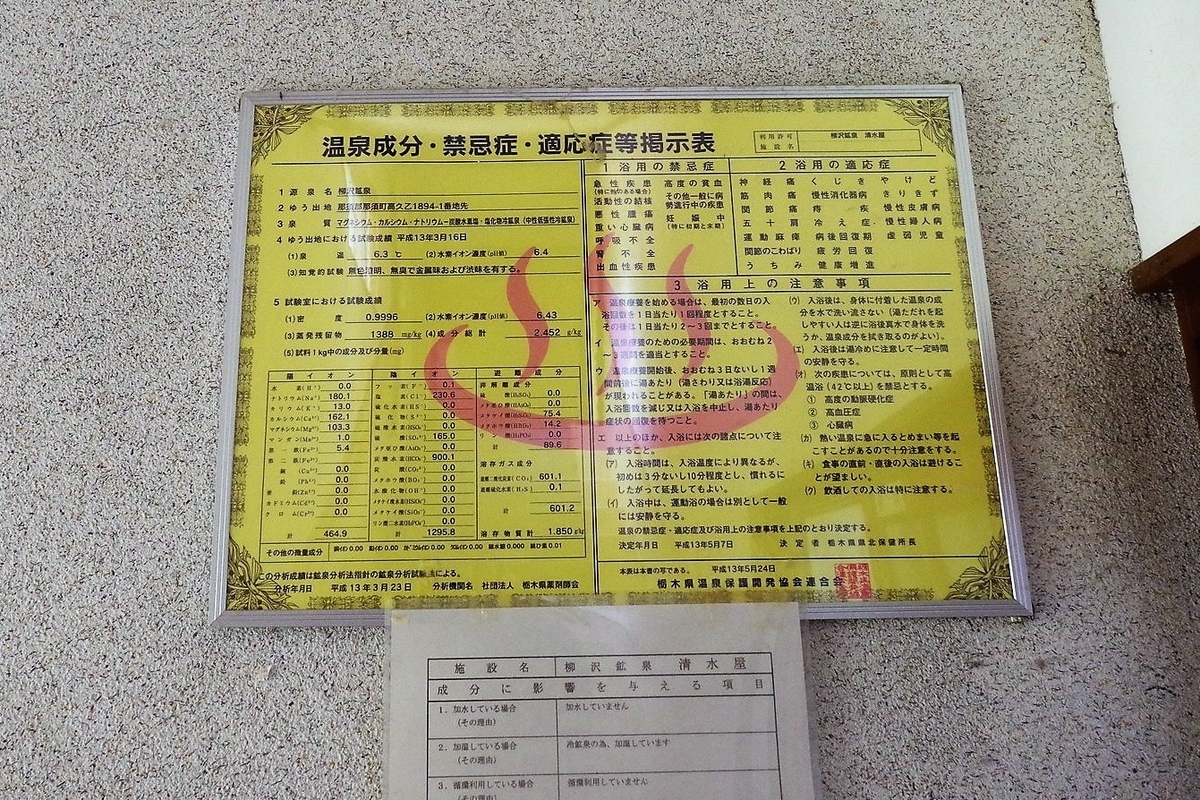 温泉成分・禁忌症・適応症等掲示表
利用許可施設名 柳沢鉱泉 清水屋
1 源泉名 柳沢鉱泉
2 ゆう出地 那須郡那須町高久乙1894-1番地先
3 泉質 マグネシウム・カルシウム・ナトリウムー炭酸水素塩・塩化物冷鉱泉(中性低張性冷鉱泉)
4 ゆう出地における試験成績 平成13年3月16日
(1)泉温 6.3 ℃ (2)水素イオン濃度(pH値) 6.4
(3)知覚的試験 無色透明、無臭で金属味および渋味を有する。
5 試験室における試験成績
(1)密度 0.9996 (2)水素イオン濃度(pH値) 6.43
(3)蒸発残留物 1388 mg/kg (4)成分総計 2.452 g/kg
(5)試料1kg中の成分及び分量(mg)
陽イオン
水素(H⁺) 0.0
ナトリウム(Na⁺) 180.1
カリウム(K⁺) 13.0
カルシウム(Ca²⁺) 162.1
マグネシウム(Mg²⁺) 103.3
マンガン(Mn²⁺) 1.0
第一鉄(Fe²⁺) 5.4
第二鉄(Fe³⁺)
銅(Cu²⁺) 0.0
鉛(Pb²⁺) 0.0
亜鉛(Zn²⁺) 0.0
カドミウム(Cd²⁺) 0.0
クロム(Cr³⁺) 0.0
計 464.9
陰イオン
フッ素(F⁻) 0.1
塩素(Cl⁻) 230.6
硫化水素(HS⁻) 0.0
硫化物(S²⁻) 0.0
硫酸水素(HSO₄⁻) 0.0
硫酸(SO₄²⁻) 165.0
メタ亜ひ酸(AsO₂⁻) 0.0
炭酸水素(HCO₃⁻) 900.1
炭酸(CO₃²⁻) 0.0
メタホウ酸(BO₂⁻) 0.0
水酸化物(OH⁻) 0.0
メタケイ酸水素(HSiO₃⁻) 0.0
メタケイ酸(SiO₃²⁻) 0.0
リン酸二水素(H₂PO₄⁻) 0.0
計 1295.8
遊離成分
非解離成分
硫酸(H₂SO₄) 0.0
メタ亜ひ酸(HAsO₂) 0.0
メタケイ酸(H₂SiO₃) 75.4
メタホウ酸(HBO₂) 14.2
リン酸(H₃PO₄) 0.0
計 89.6
溶存ガス成分
遊離二酸化炭素(CO₂) 601.1
遊離硫化水素(H₂S) 0.1
計 601.2
溶存物質計 1.850 g/kg
その他の微量成分
この分析成績は鉱泉分析法指針の鉱泉分析試験法による。
分析年月日 平成13年3月23日 分析機関名 社団法人 栃木県薬剤師会
1 浴用の禁忌症
急性疾患
(特に熱のある場合)
活動性の結核
悪性腫瘍
重い心臓病
呼吸不全
腎不全
出血性疾患
高度の貧血
その他一般に病
勢進行中の疾患
妊娠中
(特に初期と末期)
2 浴用の適応症
神経痛 くじき やけど
筋肉痛 慢性消化器病 きりきず
関節痛 痔疾 慢性皮膚病
五十肩 冷え症 慢性婦人病
運動麻痺 病後回復期 虚弱児童
関節のこわばり 疲労回復
うちみ 健康増進
3 浴用上の注意事項
ア 温泉療養を始める場合は、最初の数日の入
浴回数を1日当たり1回程度とすること。
その後は1日当たり2〜3回までとすること。
イ 温泉療養のための必要期間は、おおむね2
〜3週間を適当とすること。
ウ 温泉療養開始後、おおむね3日ないし1週
間前後に湯あたり(湯さわり又は浴湯反応)
が現われることがある。「湯あたり」の間は、
入浴回数を減じ又は入浴を中止し、湯あたり
症状の回復を待つこと。
エ 以上のほか、入浴には次の諸点について注
意すること。
(ア) 入浴時間は、入浴温度により異なるが、
初めは3分ないし10分程度とし、慣れるに
したがって延長してもよい。
(イ) 入浴中は、運動浴の場合は別として一般
には安静を守る。
(ウ) 入浴後は、身体に付着した温泉の成
分を水で洗い流さない(湯ただれを起
しやすい人は逆に浴後真水で身体を洗
うか、温泉成分を拭き取るのがよい)。
(エ) 入浴後は湯冷めに注意して一定時間
の安静を守る。
(オ) 次の疾患については、原則として高
温浴(42℃以上)を禁忌とする。
① 高度の動脈硬化症
② 高血圧症
③ 心臓病
(カ) 熱い温泉に急に入るとめまい等を起
こすことがあるので十分注意をする。
(キ) 食事の直前・直後の入浴は避けるこ
とが望ましい。
(ク) 飲酒しての入浴は特に注意する。
温泉の禁忌症・適応症及び浴用上の注意事項を上記のとおり決定する。
決定年月日 平成13年5月7日 決定者 栃木県県北保健所長
本表は本書の写である。 平成13年5月24日
栃木県温泉保護開発協会連合会
施設名 柳沢鉱泉 清水屋
成分に影響を与える項目
1．加水している場合 加水していません
(その理由)
2．加温している場合 冷鉱泉の為、加温しています
(その理由)
3．循環利用している場合 循環利用していません
(その理由)